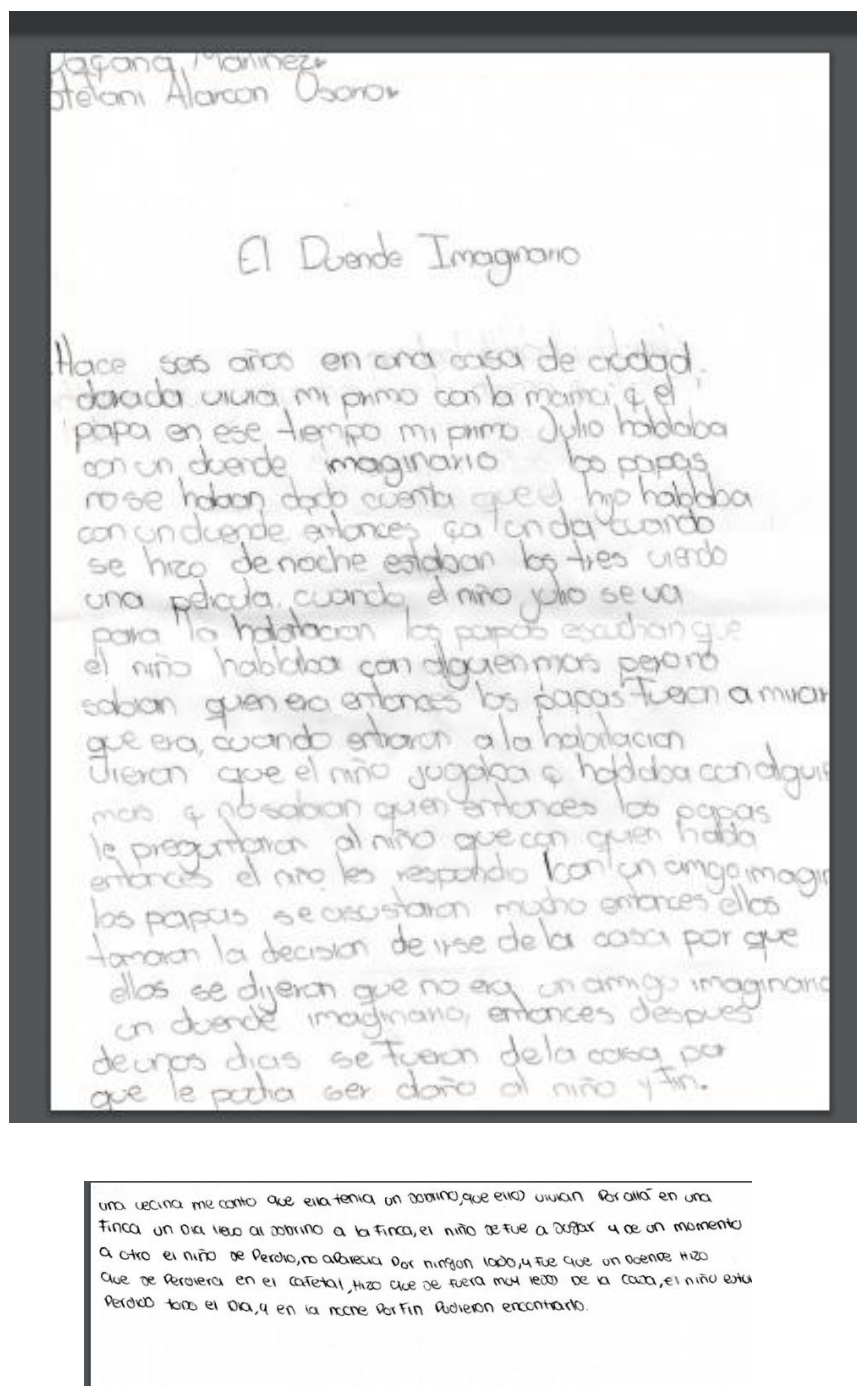 Martinez
Alarcon Osorio
El Duende Imaginario
Hace seis años en una casa de ciudad
dorada vivia mi primo con la mama y el
papa en ese tiempo mi primo Julio hablaba
con un duende imaginario los papas
no se habian dado cuenta que el hijo hablaba
con un duende entonces un dia cuando
se hizo de noche estaban los tres viendo
una pelicula cuando el niño julio se va
para la habitacion los papas escuchan que
el niño hablaba con alguien mas pero no
sabian quien era entonces los papas fueron a mirar
que era, cuando entraron a la habitacion
vieron que el niño jugaba y hablaba con alguie
mas y no sabian quien entonces los papas
le preguntaron al niño que con quien habla
entonces el niño les respondio con un amigo imagin
los papas se asustaron mucho entonces ellos
tomaron la decision de irse de la casa por que
ellos se dijeron que no era un amigo imaginario
un duende imaginario, entonces despues
de unos dias se fueron de la casa por
que le podia ser daño al niño y fin.
una vecina me conto que ella tenia un sobrino, que ellos vivian por allá en una
finca un dia llevo al sobrino a la finca, el niño se fue a jugar y de un momento
a otro el niño se perdio, no aparecia por ningun lado, y fue que un duende hizo
que se perdiera en el cafetal, hizo que se fuera muy lejos de la casa, el niño estu
perdido todo el dia, y en la noche por fin pudieron encontrarlo.